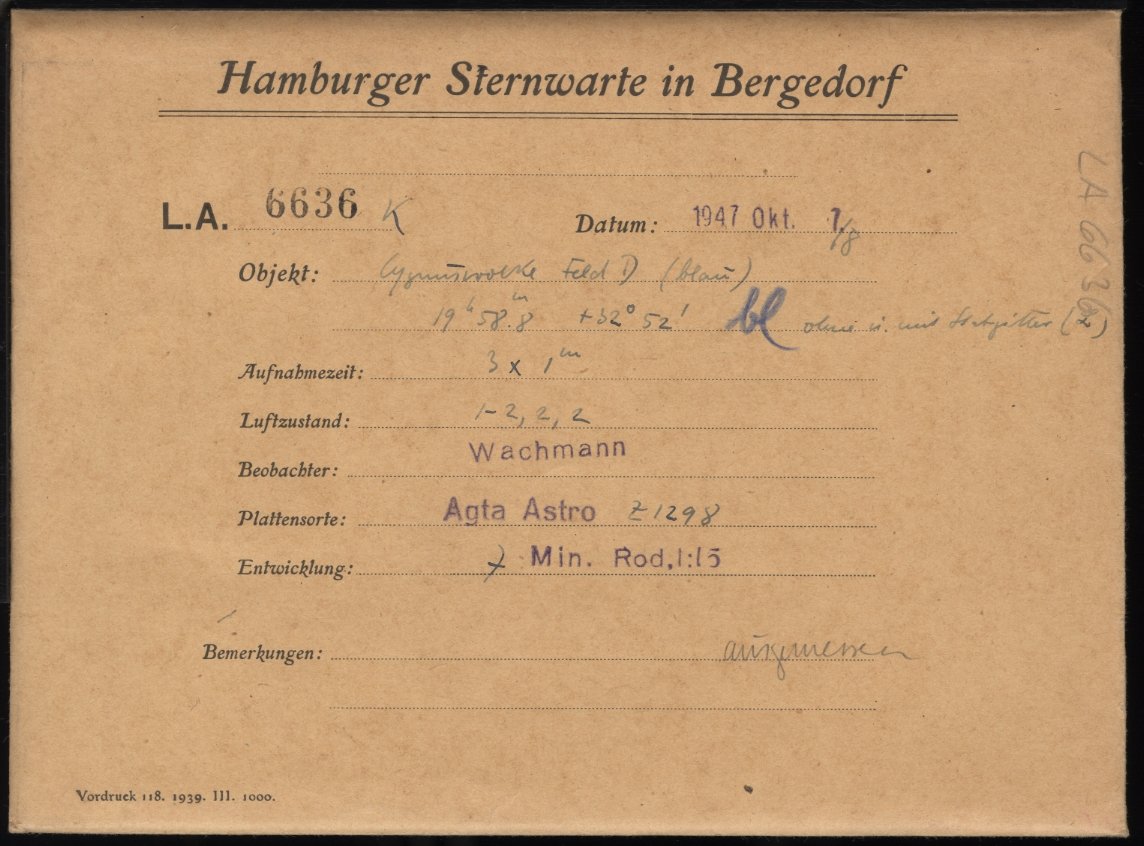 Hamburger Sternwarte in Bergedorf
L.A. 6636 K
Datum: 1947 Okt. 7./8
Objekt: Cygnuswolke Feld D (blau)
19h 58.m8 +32° 52' bl ohne u. mit
Aufnahmezeit: 3 x 1m
Luftzustand: 1-2, 2, 2
Beobachter: Wachmann
Plattensorte: Agfa Astro Z1298
Entwicklung: 7 Min. Rod,1:15
Bemerkungen: ausgemessen
Vordruck 118. 1939. III. 1000.
LA 6636